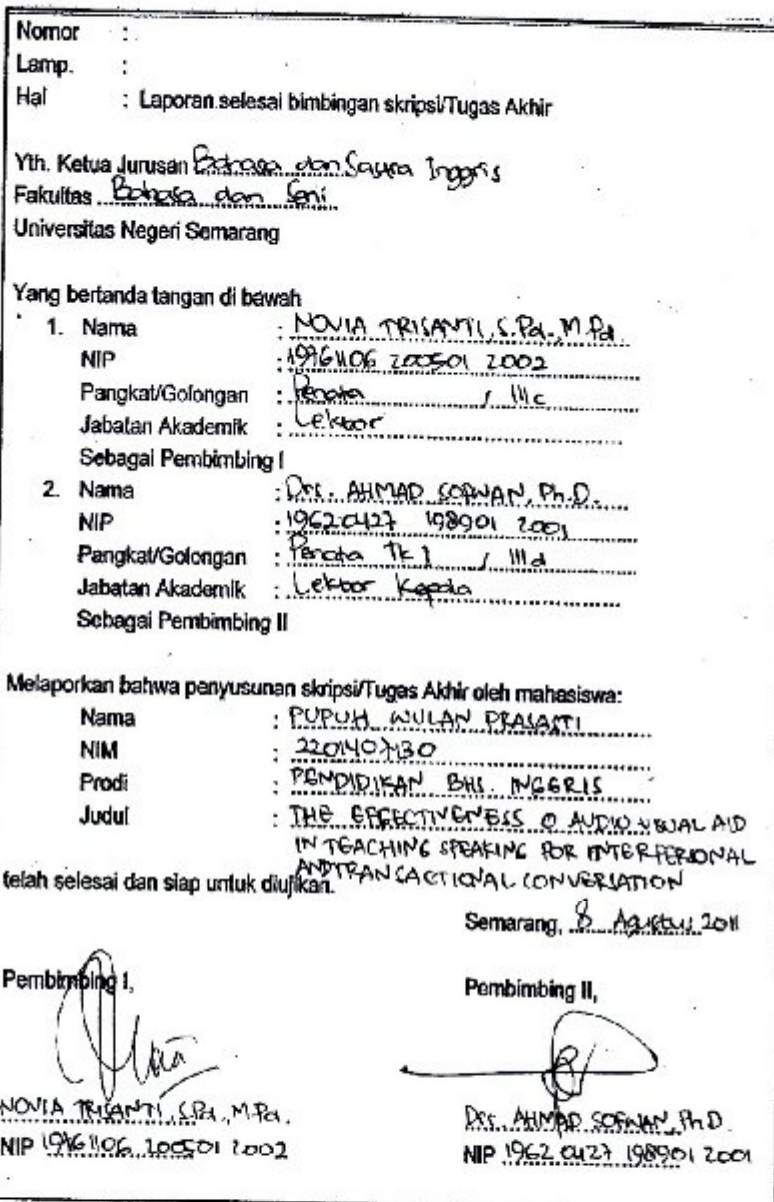 Nomor :
Lamp. :
Hal : Laporan selesai bimbingan skripsi/Tugas Akhir
Yth. Ketua Jurusan Bahasa dan Sastra Inggris
Fakultas Bahasa dan Seni
Universitas Negeri Semarang
Yang bertanda tangan di bawah
1. Nama : NOVIA TRISANTI, S.Pd., M.Pd.
NIP : 19761106 200501 2002
Pangkat/Golongan : Penata / IIIc
Jabatan Akademik : Lektor
Sebagai Pembimbing I
2. Nama : Drs. AHMAD SOFWAN, Ph.D.
NIP : 19620427 198901 2001
Pangkat/Golongan : Penata Tk I / IIId
Jabatan Akademik : Lektor Kepala
Sebagai Pembimbing II
Melaporkan bahwa penyusunan skripsi/Tugas Akhir oleh mahasiswa:
Nama : PUPUH WULAN PRASASTI
NIM : 2201407130
Prodi : PENDIDIKAN BHS. INGGRIS
Judul : THE EFFECTIVENESS O AUDIO VISUAL AID
IN TEACHING SPEAKING FOR INTERPERSIONAL
AND TRANSACTIONAL CONVERSATION
telah selesai dan siap untuk diujikan.
Semarang, 8 Agustus 2011
Pembimbing I, Pembimbing II,
NOVIA TRISANTI, S.Pd., M.Pd. Drs. AHMAD SOFWAN, Ph.D
NIP 19761106 200501 2002 NIP 19620427 198901 2001